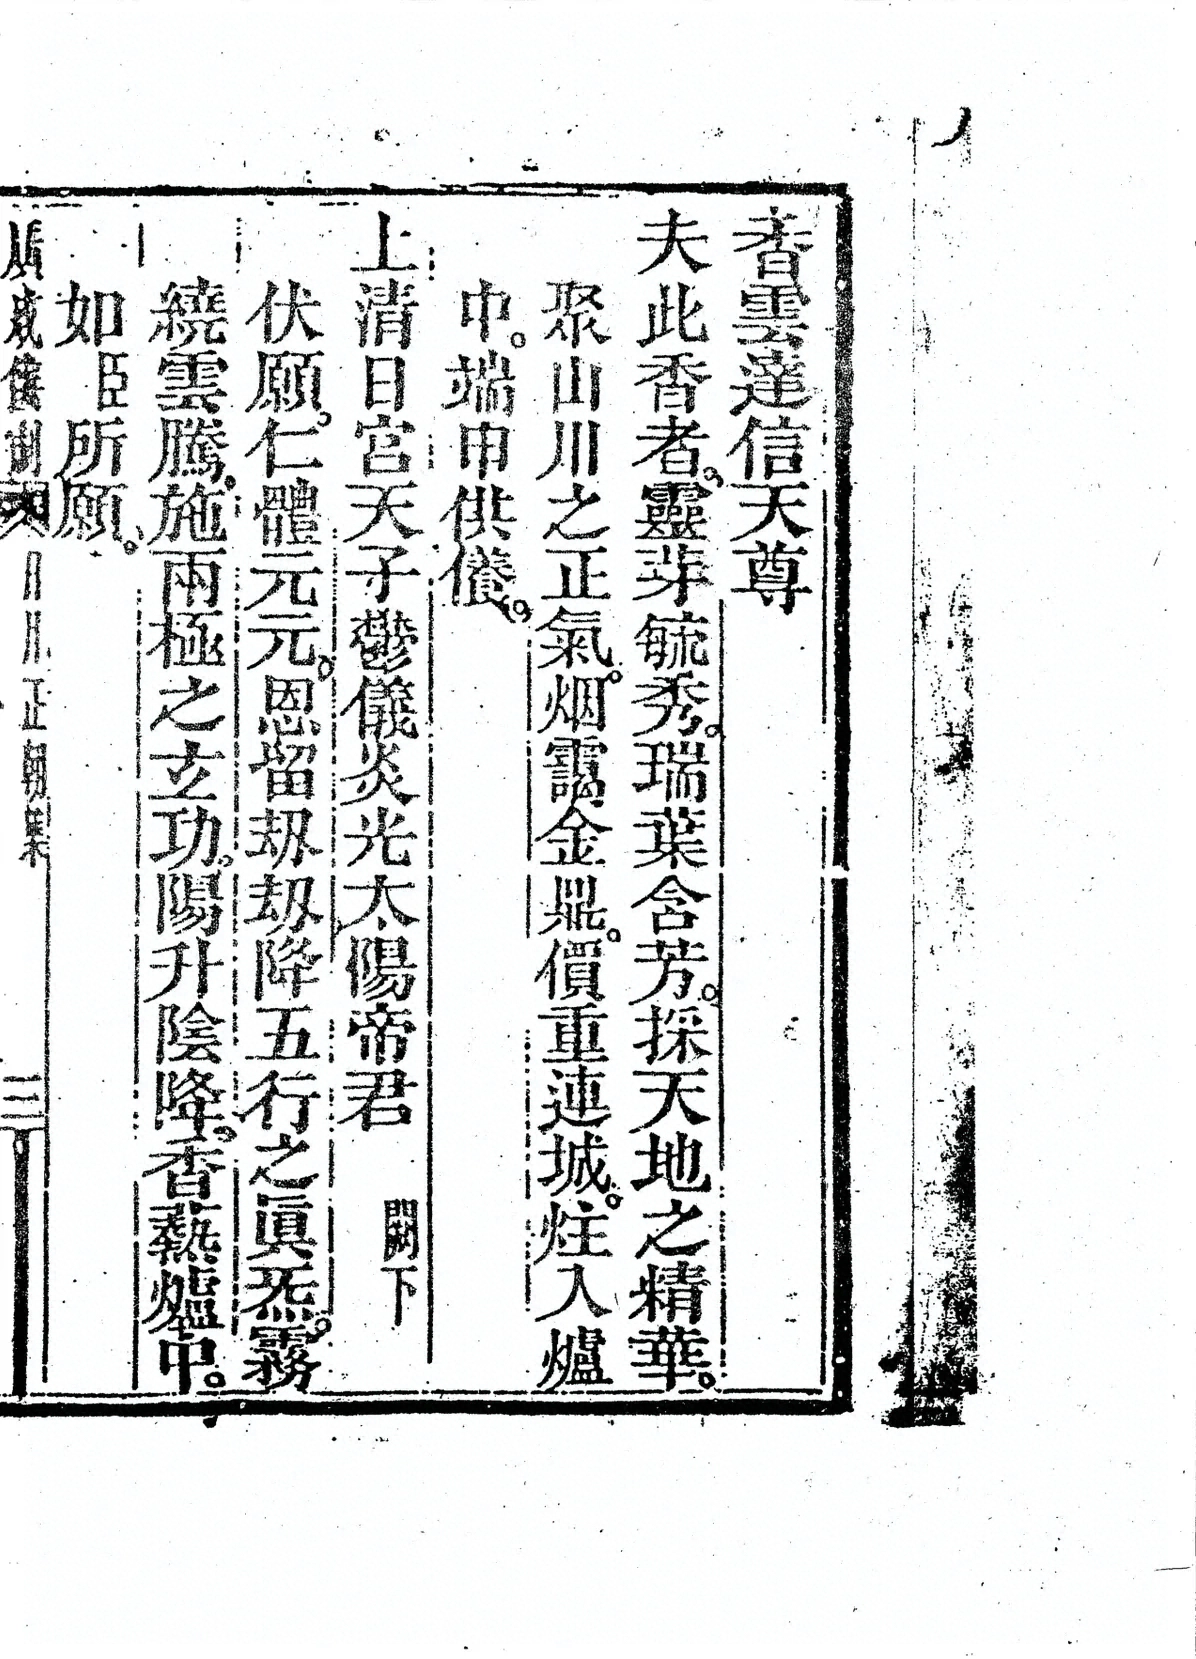 香雲達信天尊
夫此香者。靈芽毓秀。瑞葉含芳。採天地之精華。
聚山川之正氣。烟靄金鼎。價重連城。炷入爐
中。端申供儀。
上清日宮天子鬱儀炎光太陽帝君 闕下
伏願。仁體元元。恩留刼刼降五行之眞炁。霧
繞雲騰。施兩極之玄功。陽升陰降。香爇爐中。
如臣所願。
廣成儀制 正朝集 三